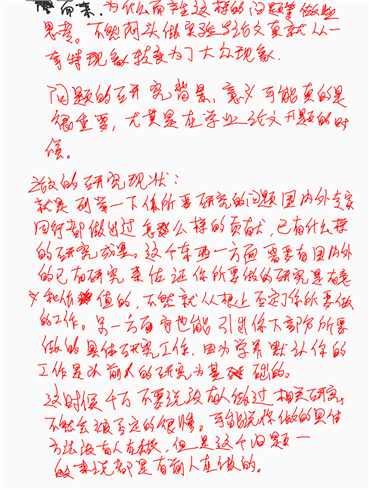 而来，为什么而产生这样的问题等做些
思考。不然两头做实验写论文真就从一
奇特现象转变为了大众现象.
问题的研究背景、意义可能真的是
很重要，尤其是在学业论文开题的时
候。
之后的研究现状：
就是列举一下你所要研究的问题国内外专家
同行都做出过怎么样的贡献，已有什么样
的研究成果。这个东西一方面需要有国内外
的已有研究来佐证你所要做的研究是有意
义和价值的，不然就从根上否定了你所要做
的工作。另一方面它也能引出你下部分所要
做的具体研究工作，因为学界默认你的
工作是以前人的研究为基础的。
这时候千万不要说没有人做过相关研究，
不然会被否定的很惨。可能说你做的具体
方法没有人在做，但是这个问题一
般来说都是有前人在做的。